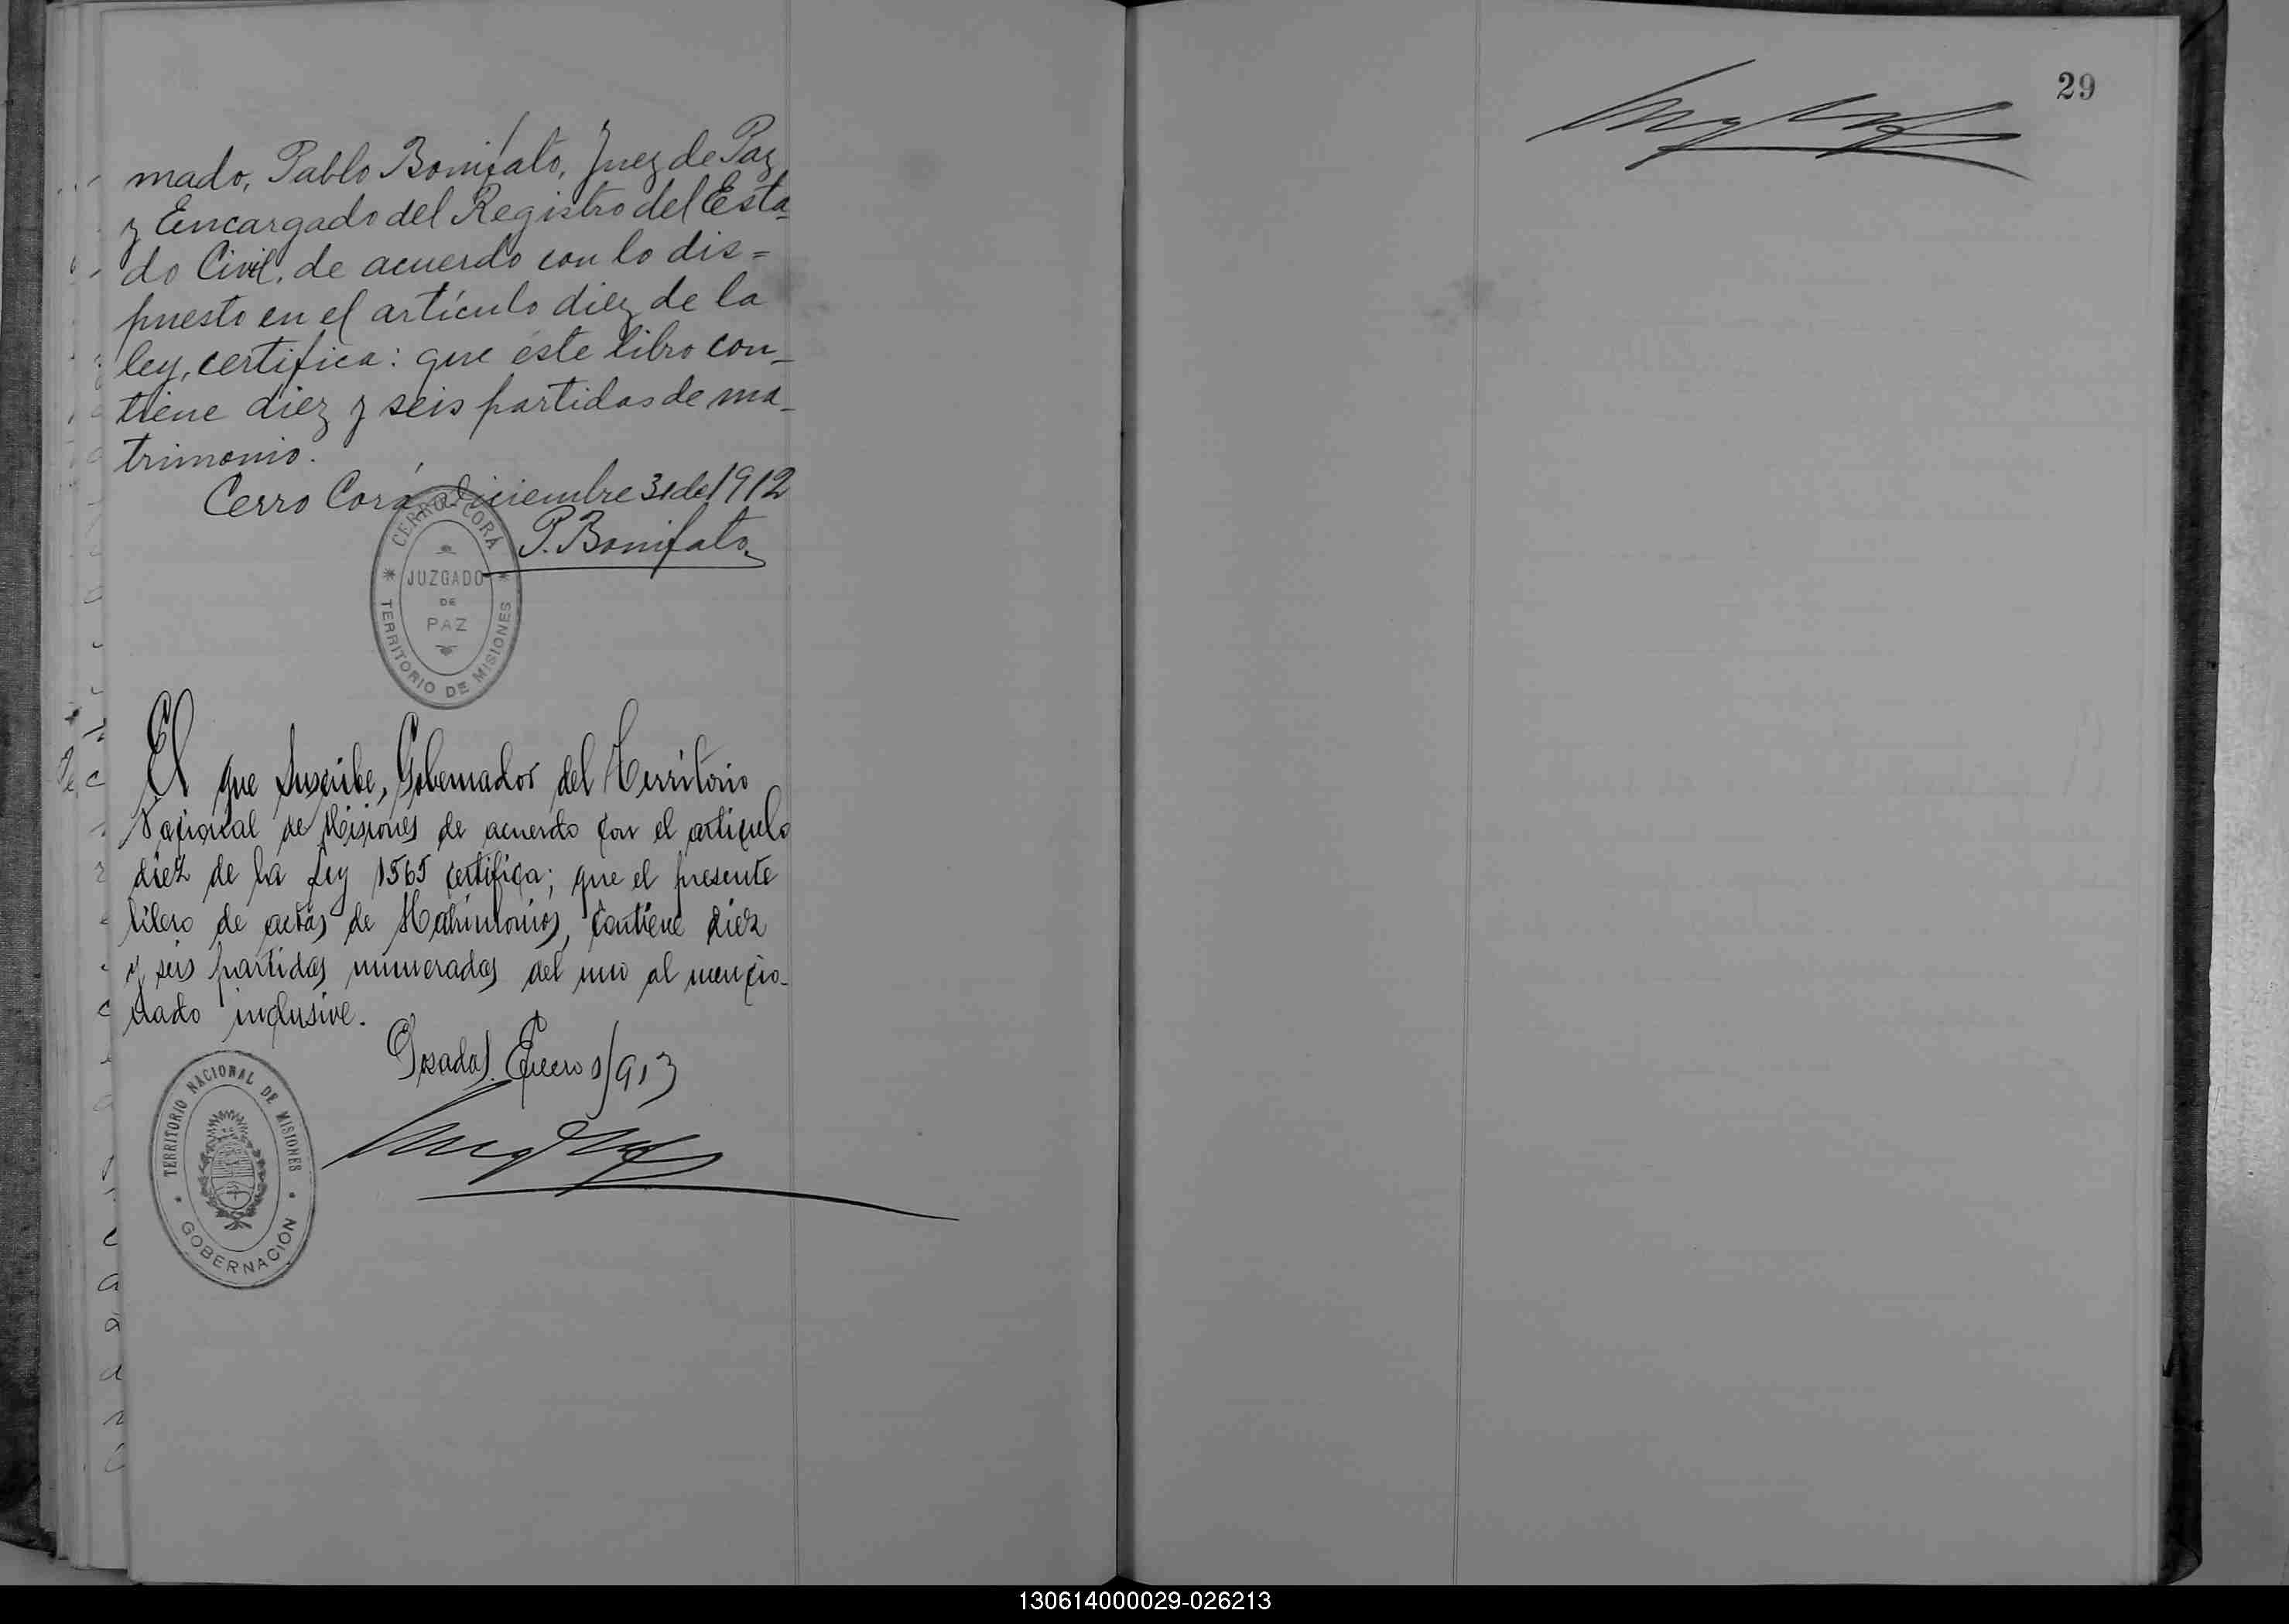 mado, Pablo Bonifato, Juez de Paz
y Encargado del Registro del Esta-
do Civil, de acuerdo con lo dis=
puesto en el artículo diez de la
ley, certifica: que éste libro con-
tiene diez y seis partidas de ma-
trimonio.
Cerro Corá, diciembre 31 de 1912
P. Bonifato
CERRO CORÁ
JUZGADO
DE
PAZ
TERRITORIO DE MISIONES
El que suscribe, Gobernador del Territorio
Nacional de Misiones de acuerdo con el articulo
diez de la Ley 1565 certifica; que el presente
libro de actas de Matrimonios, contiene diez
y seis partidas numeradas del uno al mencio-
nado inclusive.
Posadas. Enero 1/913
TERRITORIO NACIONAL DE MISIONES
GOBERNACIÓN
29
130614000029-026213